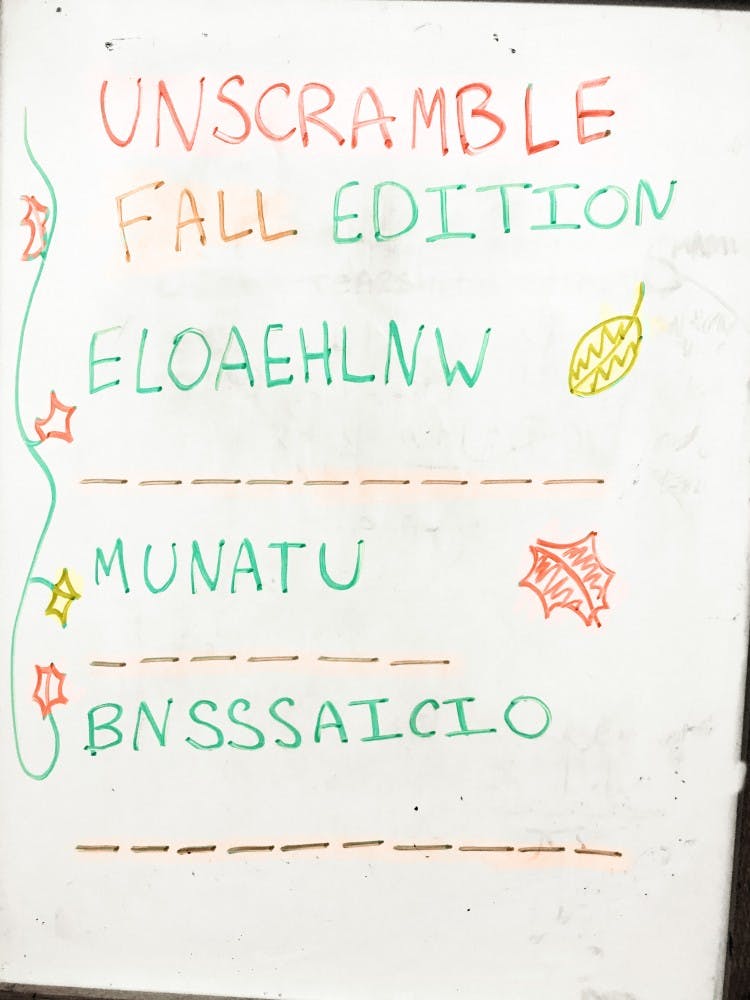 UNSCRAMBLE
FALL EDITION
ELOAEHLNW
MUNATU
BNSSSAICIO